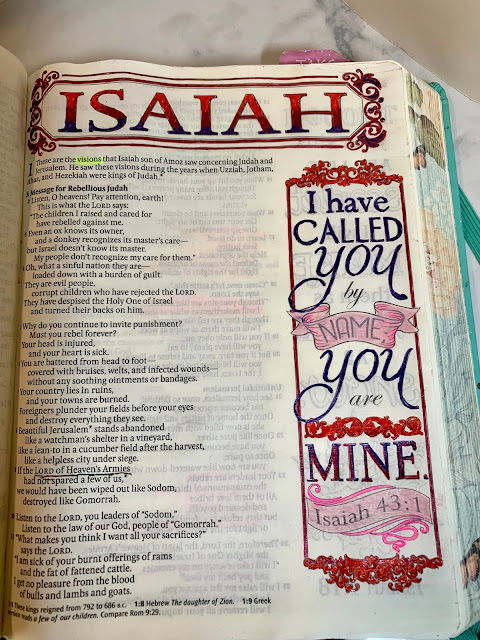 TAKE
ISAIAH
1 These are the visions that Isaiah son of Amoz saw concerning Judah and
Jerusalem. He saw these visions during the years when Uzziah, Jotham,
Ahaz, and Hezekiah were kings of Judah.*
A Message for Rebellious Judah
2 Listen, O heavens! Pay attention, earth!
This is what the LORD says:
"The children I raised and cared for
have rebelled against me.
3 Even an ox knows its owner,
and a donkey recognizes its master's care—
but Israel doesn't know its master.
My people don't recognize my care for them."
4 Oh, what a sinful nation they are—
loaded down with a burden of guilt.
They are evil people,
corrupt children who have rejected the LORD.
They have despised the Holy One of Israel
and turned their backs on him.
5 Why do you continue to invite punishment?
Must you rebel forever?
Your head is injured,
and your heart is sick.
6 You are battered from head to foot—
covered with bruises, welts, and infected wounds—
without any soothing ointments or bandages.
7 Your country lies in ruins,
and your towns are burned.
Foreigners plunder your fields before your eyes
and destroy everything they see.
8 Beautiful Jerusalem* stands abandoned
like a watchman's shelter in a vineyard,
like a lean-to in a cucumber field after the harvest,
like a helpless city under siege.
9 If the LORD of Heaven's Armies
had not spared a few of us,*
we would have been wiped out like Sodom,
destroyed like Gomorrah.
10 Listen to the LORD, you leaders of "Sodom."
Listen to the law of our God, people of "Gomorrah."
11 "What makes you think I want all your sacrifices?"
says the LORD.
"I am sick of your burnt offerings of rams
and the fat of fattened cattle.
I get no pleasure from the blood
of bulls and lambs and goats.
1:1 These kings reigned from 792 to 686 B.C. 1:8 Hebrew The daughter of Zion. 1:9 Greek
reads a few of our children. Compare Rom 9:29.
I have
CALLED
you
by
NAME,
you
are
MINE.
Isaiah 43:1